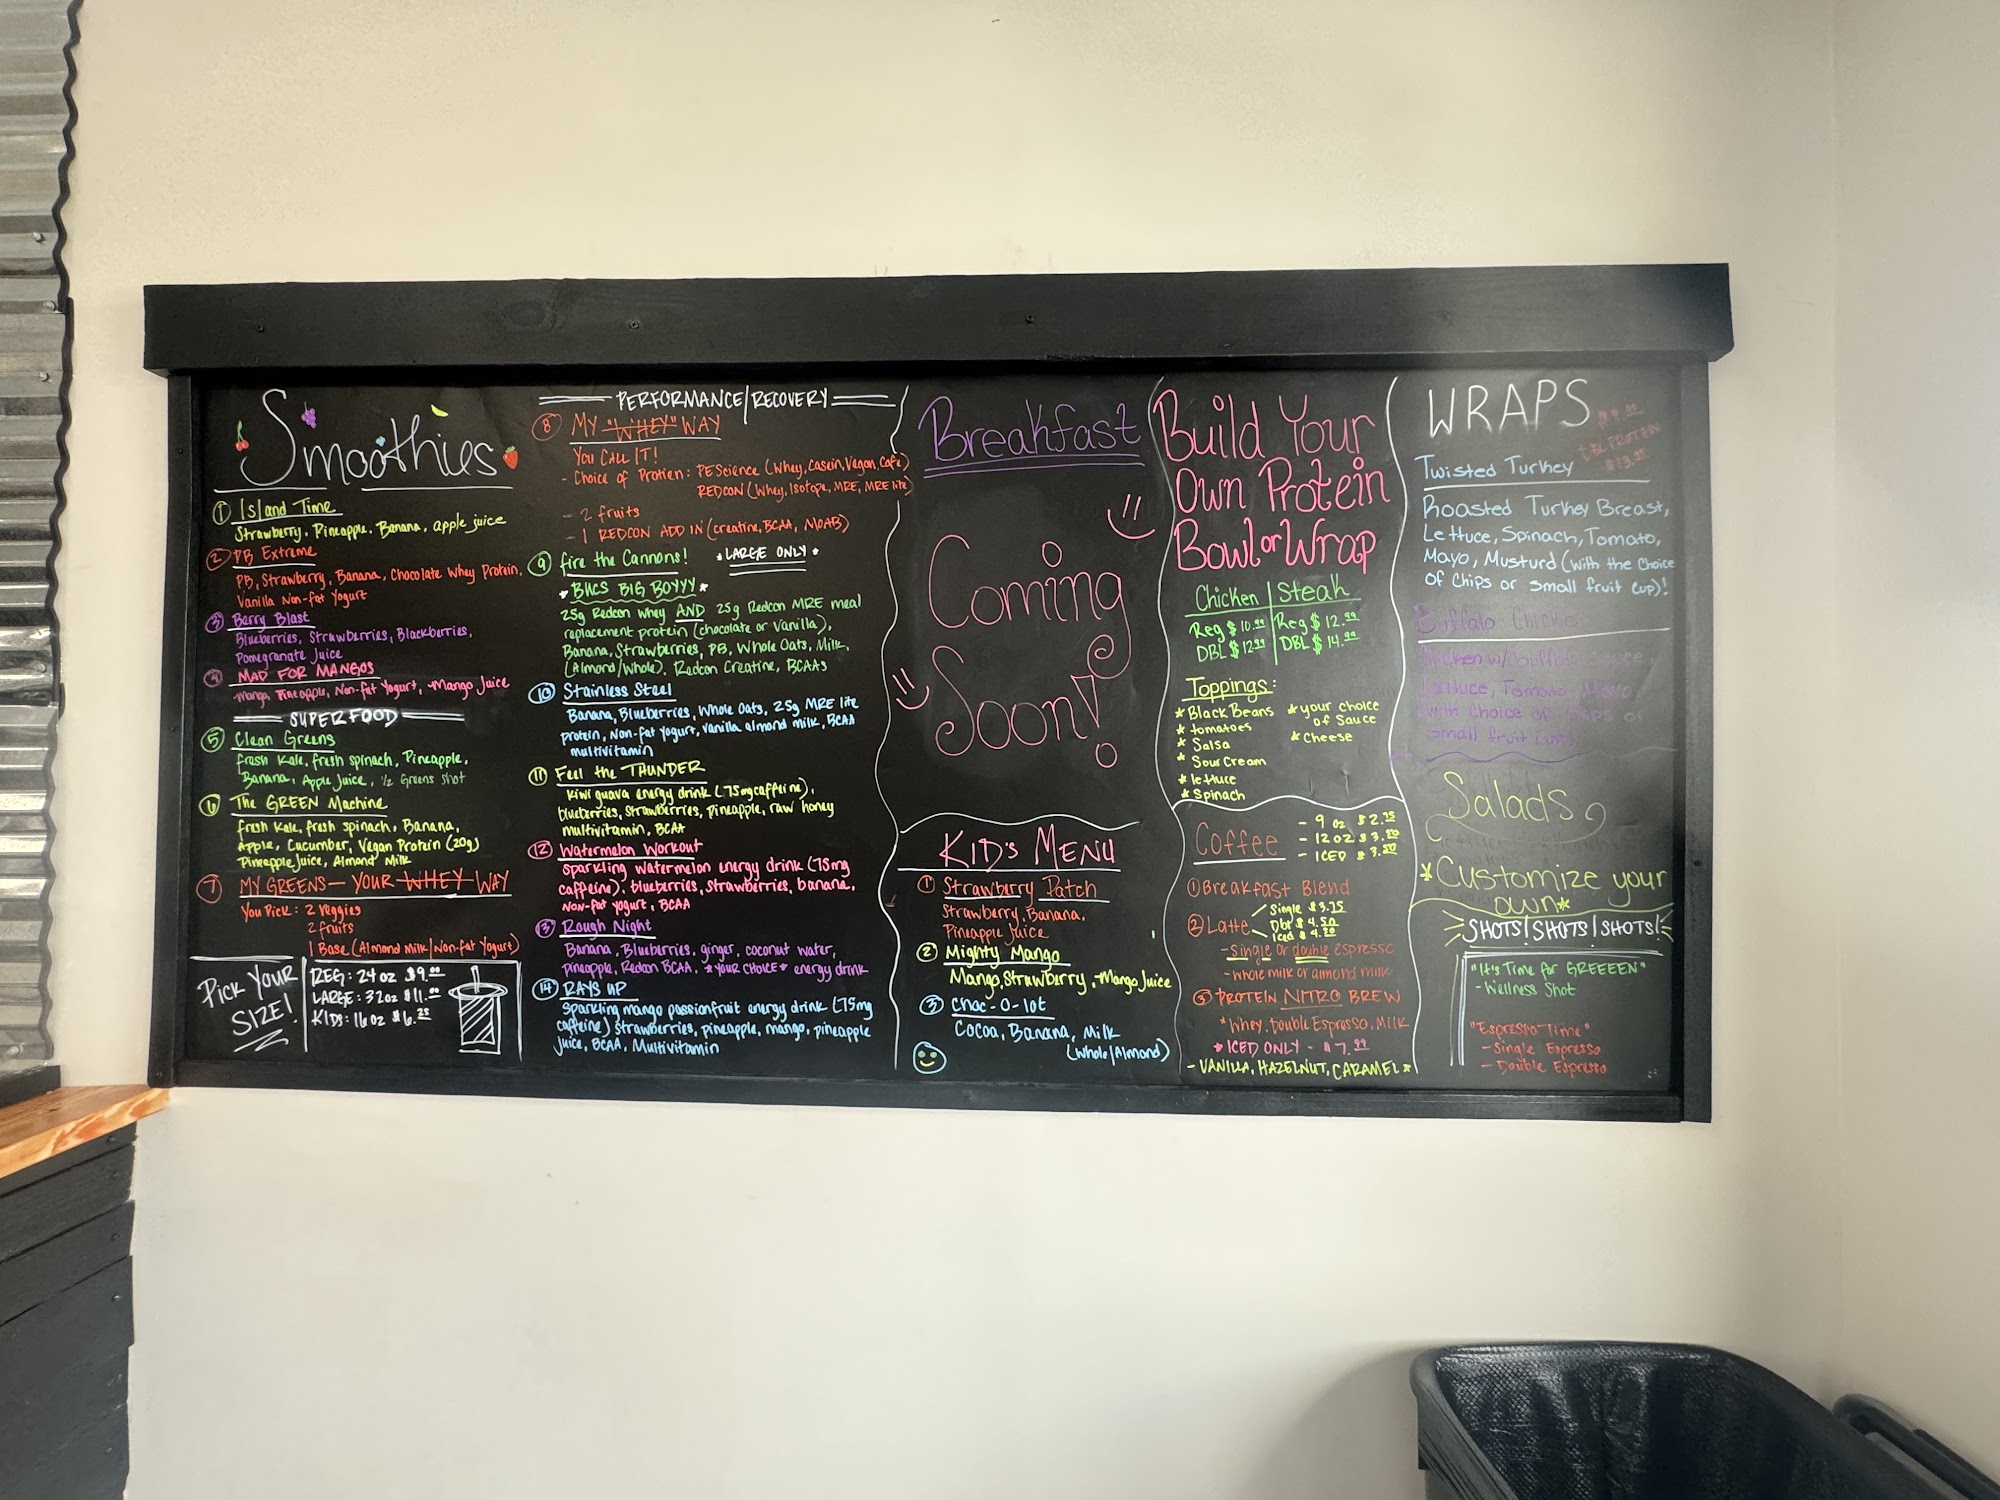 Smoothies
① Island Time
Strawberry, Pineapple, Banana, apple juice
② PB Extreme
PB, Strawberry, Banana, Chocolate Whey Protein,
Vanilla Non-fat Yogurt
③ Berry Blast
Blueberries, Strawberries, Blackberries,
Pomegranate Juice
④ MAD FOR MANGOS
Mango, Pineapple, Non-fat Yogurt, Mango Juice
SUPERFOOD
⑤ Clean Greens
fresh Kale, fresh spinach, Pineapple,
Banana, Apple Juice, 1/2 Greens Shot
⑥ The GREEN Machine
fresh Kale, fresh spinach, Banana,
Apple, Cucumber, Vegan Protein (20g)
Pineapple Juice, Almond Milk
⑦ MY GREENS— YOUR WHEY WAY
You Pick: 2 Veggies
2 fruits
1 Base (Almond Milk/Non-fat Yogurt)
PICK YOUR
SIZE!
REG: 24 oz $9.00
LARGE: 32oz $11.00
KIDS: 16 oz $6.25
PERFORMANCE/RECOVERY
⑧ MY "WHEY" WAY
YOU CALL IT!
- Choice of Protien: PEScience (Whey, Casein, Vegan, Cafe)
REDCON (Whey, Isotope, MRE, MRE lite)
- 2 fruits
- 1 REDCON ADD IN (creatine, BCAA, MOAB)
⑨ fire the Cannons! *LARGE ONLY*
*BUCS BIG BOYYY*
25g Redcon Whey AND 25g Redcon MRE meal
replacement protein (chocolate or Vanilla),
Banana, Strawberries, PB, Whole Oats, Milk,
(Almond/Whole). Redcon Creatine, BCAAs
⑩ Stainless Steel
Banana, Blueberries, Whole Oats, 25g MRE lite
protein, Non-fat Yogurt, vanilla almond milk, BCAA
multivitamin
⑪ Feel the THUNDER
Kiwi guava energy drink (75mg caffeine),
blueberries, strawberries, pineapple, raw honey
multivitamin, BCAA
⑫ Watermelon Workout
sparkling watermelon energy drink (75mg
caffeine), blueberries, strawberries, banana,
Non-fat yogurt, BCAA
⑬ Rough Night
Banana, Blueberries, ginger, coconut water,
pineapple, Redcon BCAA, *YOUR CHOICE* energy drink
⑭ RAYS UP
sparkling mango passionfruit energy drink (75mg
caffeine) strawberries, pineapple, mango, pineapple
juice, BCAA, Multivitamin
Breakfast
Coming
Soon!
KID's MENU
① Strawberry Patch
Strawberry, Banana,
Pineapple Juice
② Mighty Mango
Mango, Strawberry, Mango Juice
③ Choc-O-lot
Cocoa, Banana, Milk
(Whole/Almond)
Build Your
Own Protein
Bowl or Wrap
Chicken | Steak
Reg $10.99 Reg $12.99
DBL $12.99 DBL $14.99
Toppings:
* Black Beans * your choice
of Sauce
* tomatoes
* Salsa * Cheese
* Sour Cream
* lettuce
* Spinach
Coffee
- 9 oz $2.75
- 12 oz $3.50
- ICED $3.50
① Breakfast Blend
② Latte
Single $3.75
Dbl $4.50
Iced $4.50
- Single or double espresso
- whole milk or almond milk
③ PROTEIN NITRO BREW
*Whey, Double Espresso, Milk
*ICED ONLY - $7.99
- VANILLA, HAZELNUT, CARAMEL*
WRAPS
DBL PROTEIN
Twisted Turkey
Roasted Turkey Breast,
Lettuce, Spinach, Tomato,
Mayo, Musturd (with the Choice
of Chips or small fruit cup)!
Buffalo
Chicken w/ buffalo sauce,
Lettuce, Tomato, Mayo
(with Choice of Chips or
small fruit Cup)
Salads
*Customize your
own*
SHOTS! SHOTS! SHOTS!
"It's Time for GREEEEN"
- Wellness Shot
"Espresso Time"
- Single Espresso
- Double Espresso